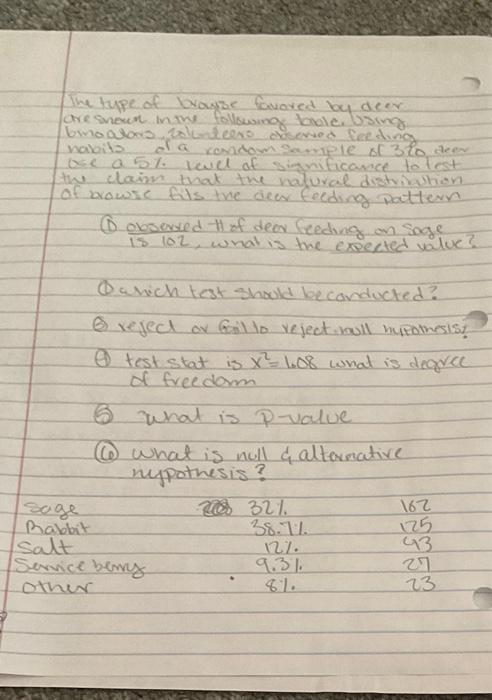 The type of browse favored by deer
are shown in the following table. Using
binoculars, volunteers observed feeding
habits of a random sample of 320 deer
use a 5% level of significance to test
the claim that the natural distribution
of browse fits the deer feeding pattern
① observed # of deer feeding on Sage
is 102, what is the expected value?
② which test should be conducted?
③ reject or fail to reject null hypothesis?
④ test stat is x²= 1.08 what is degree
of freedom
⑤ what is P-value
⑥ what is null & alternative
hypothesis?
Sage 32% 102
Rabbit 38.7% 125
Salt 12% 43
Service berry 9.3% 27
other 8% 23